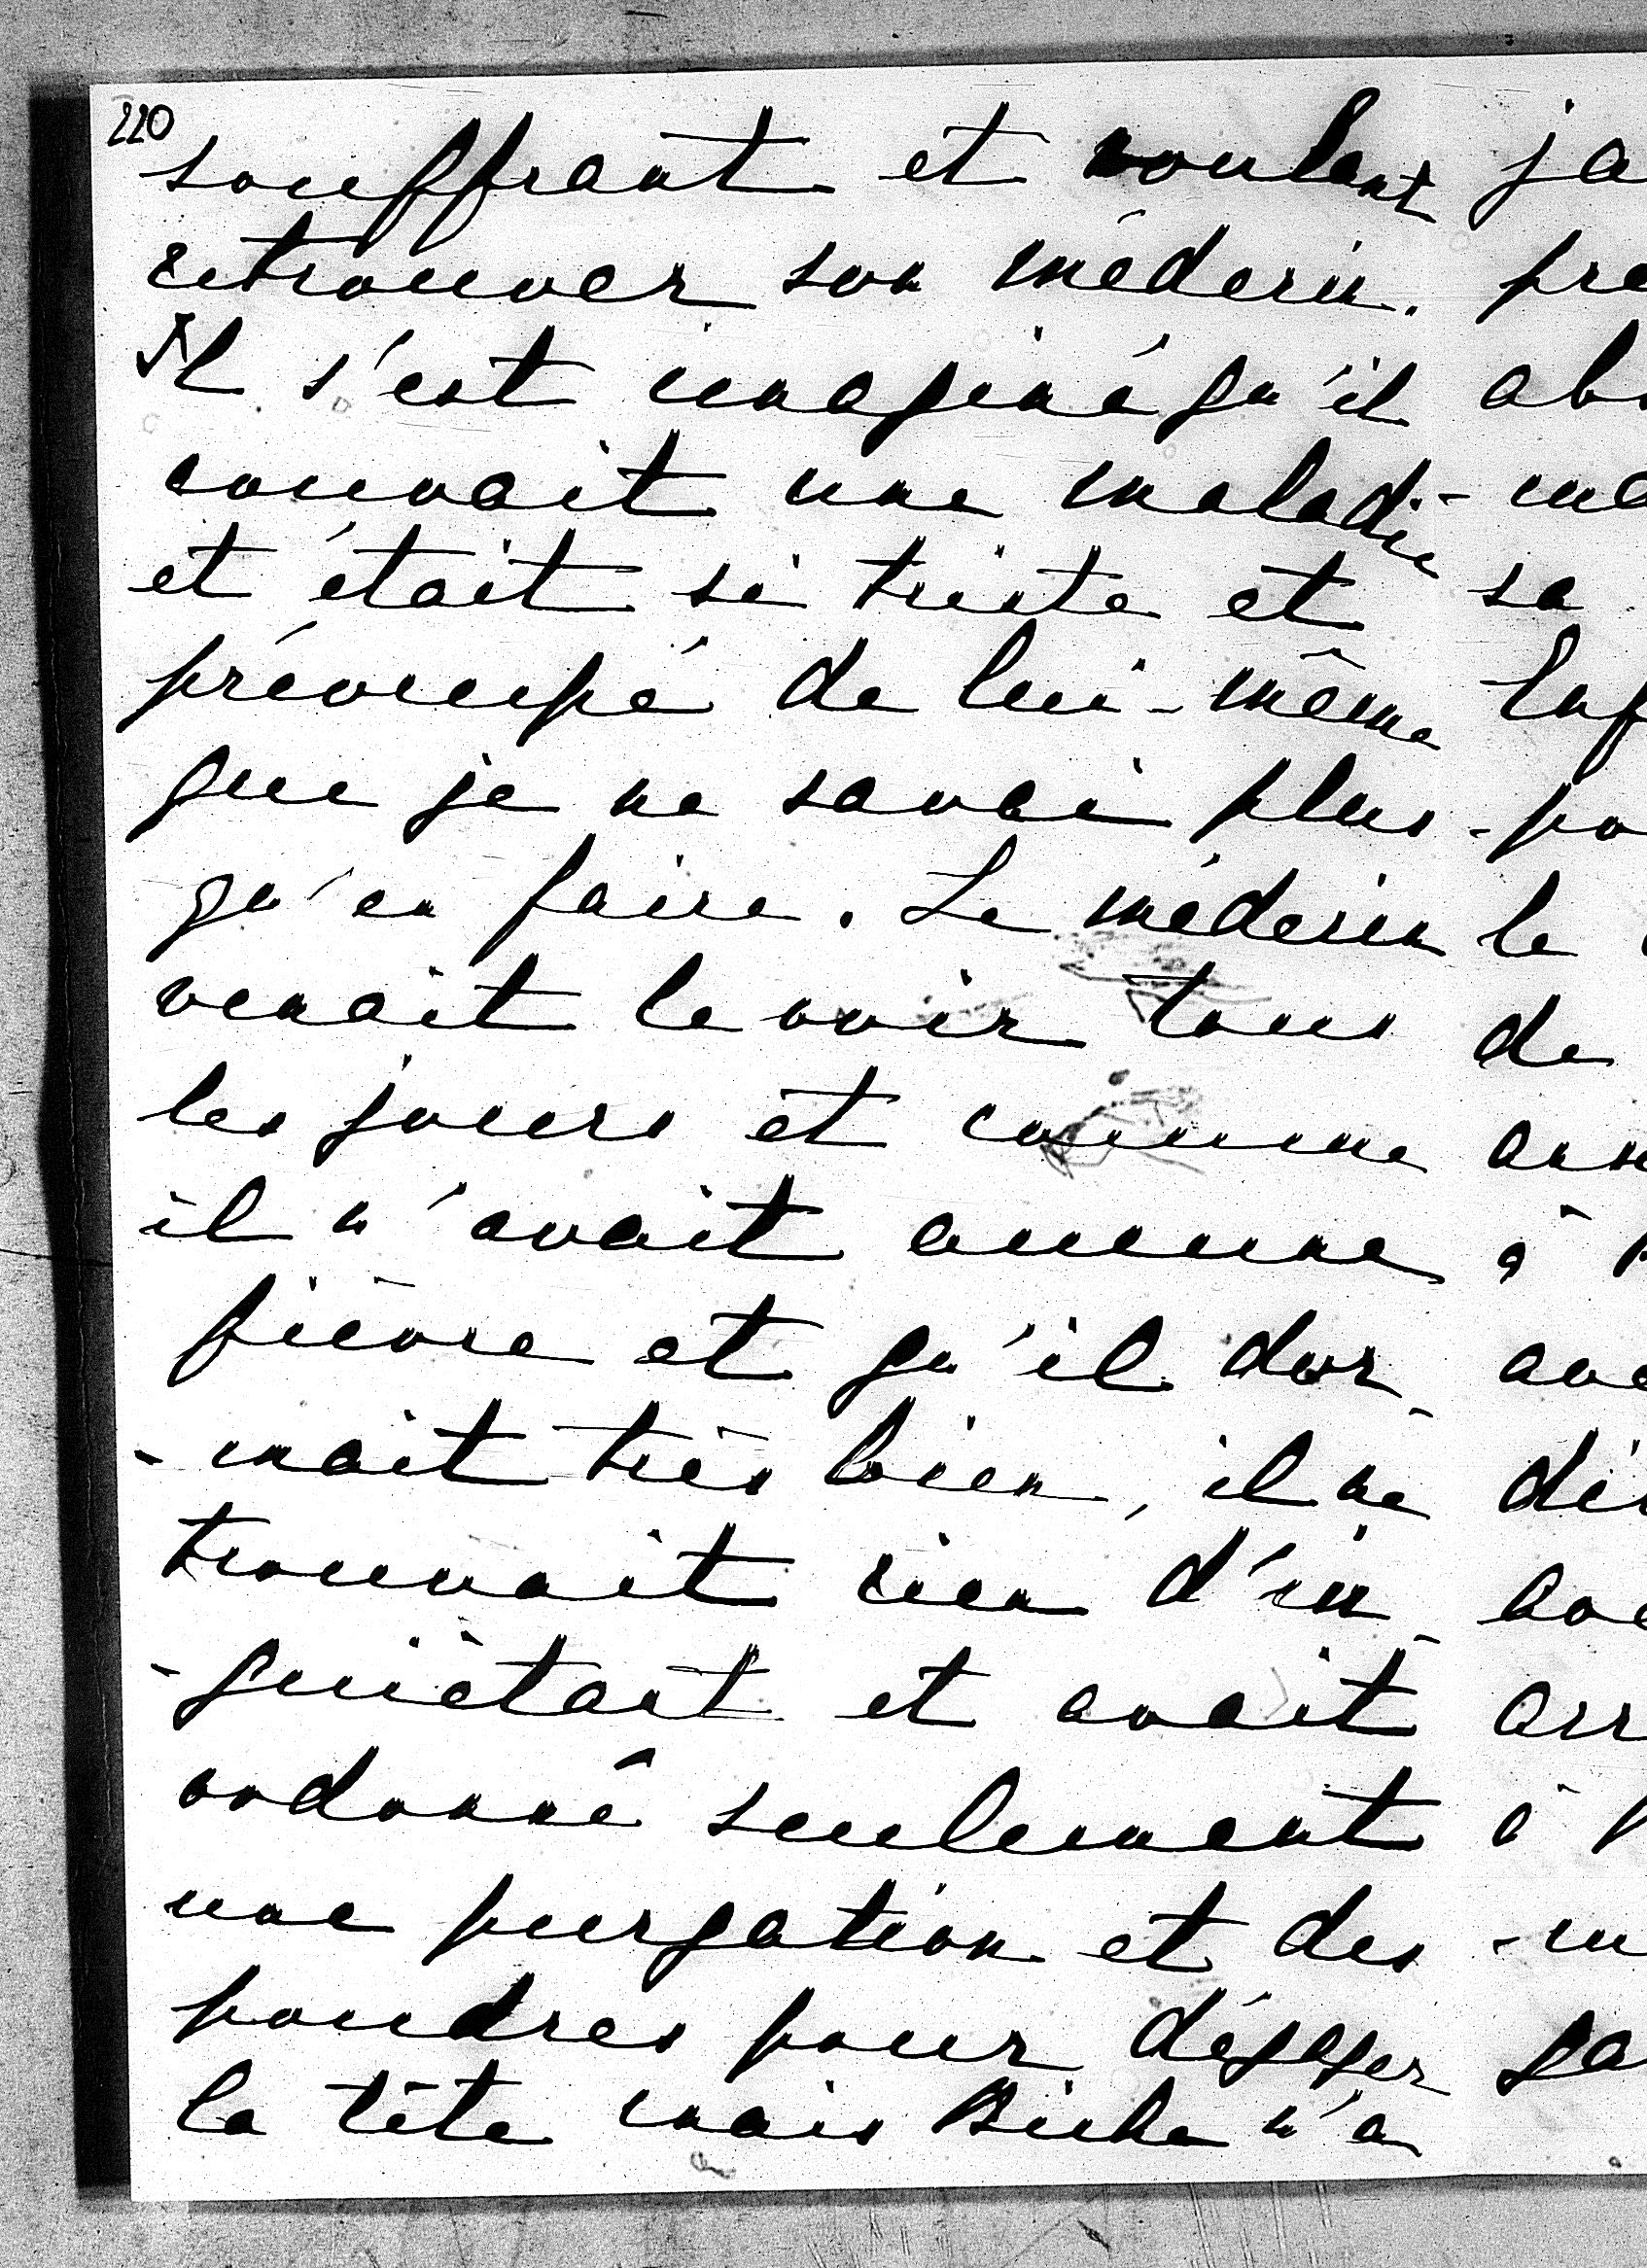 220
souffrant et voulant
retrouver son médecin.
Il s'est imaginé qu'il
couvait une maladie
et était si triste et
préoccupé de lui-même
que je ne savai plus
qu'en faire. Le médecin
venait le voir tous
les jours et comme
il n'avait aucune
fièvre et qu'il dor-
-mait très bien, il ne
trouvait rien d'in-
-quiètant et avait
ordonné seulement
une purgation et des
poudres pour dégager
la tête mais Biche n'a
ja
pré
abs
-me
sa
Enf
-po
le
de
ans
à
ave
dés
ave
arr
à
-m
ga